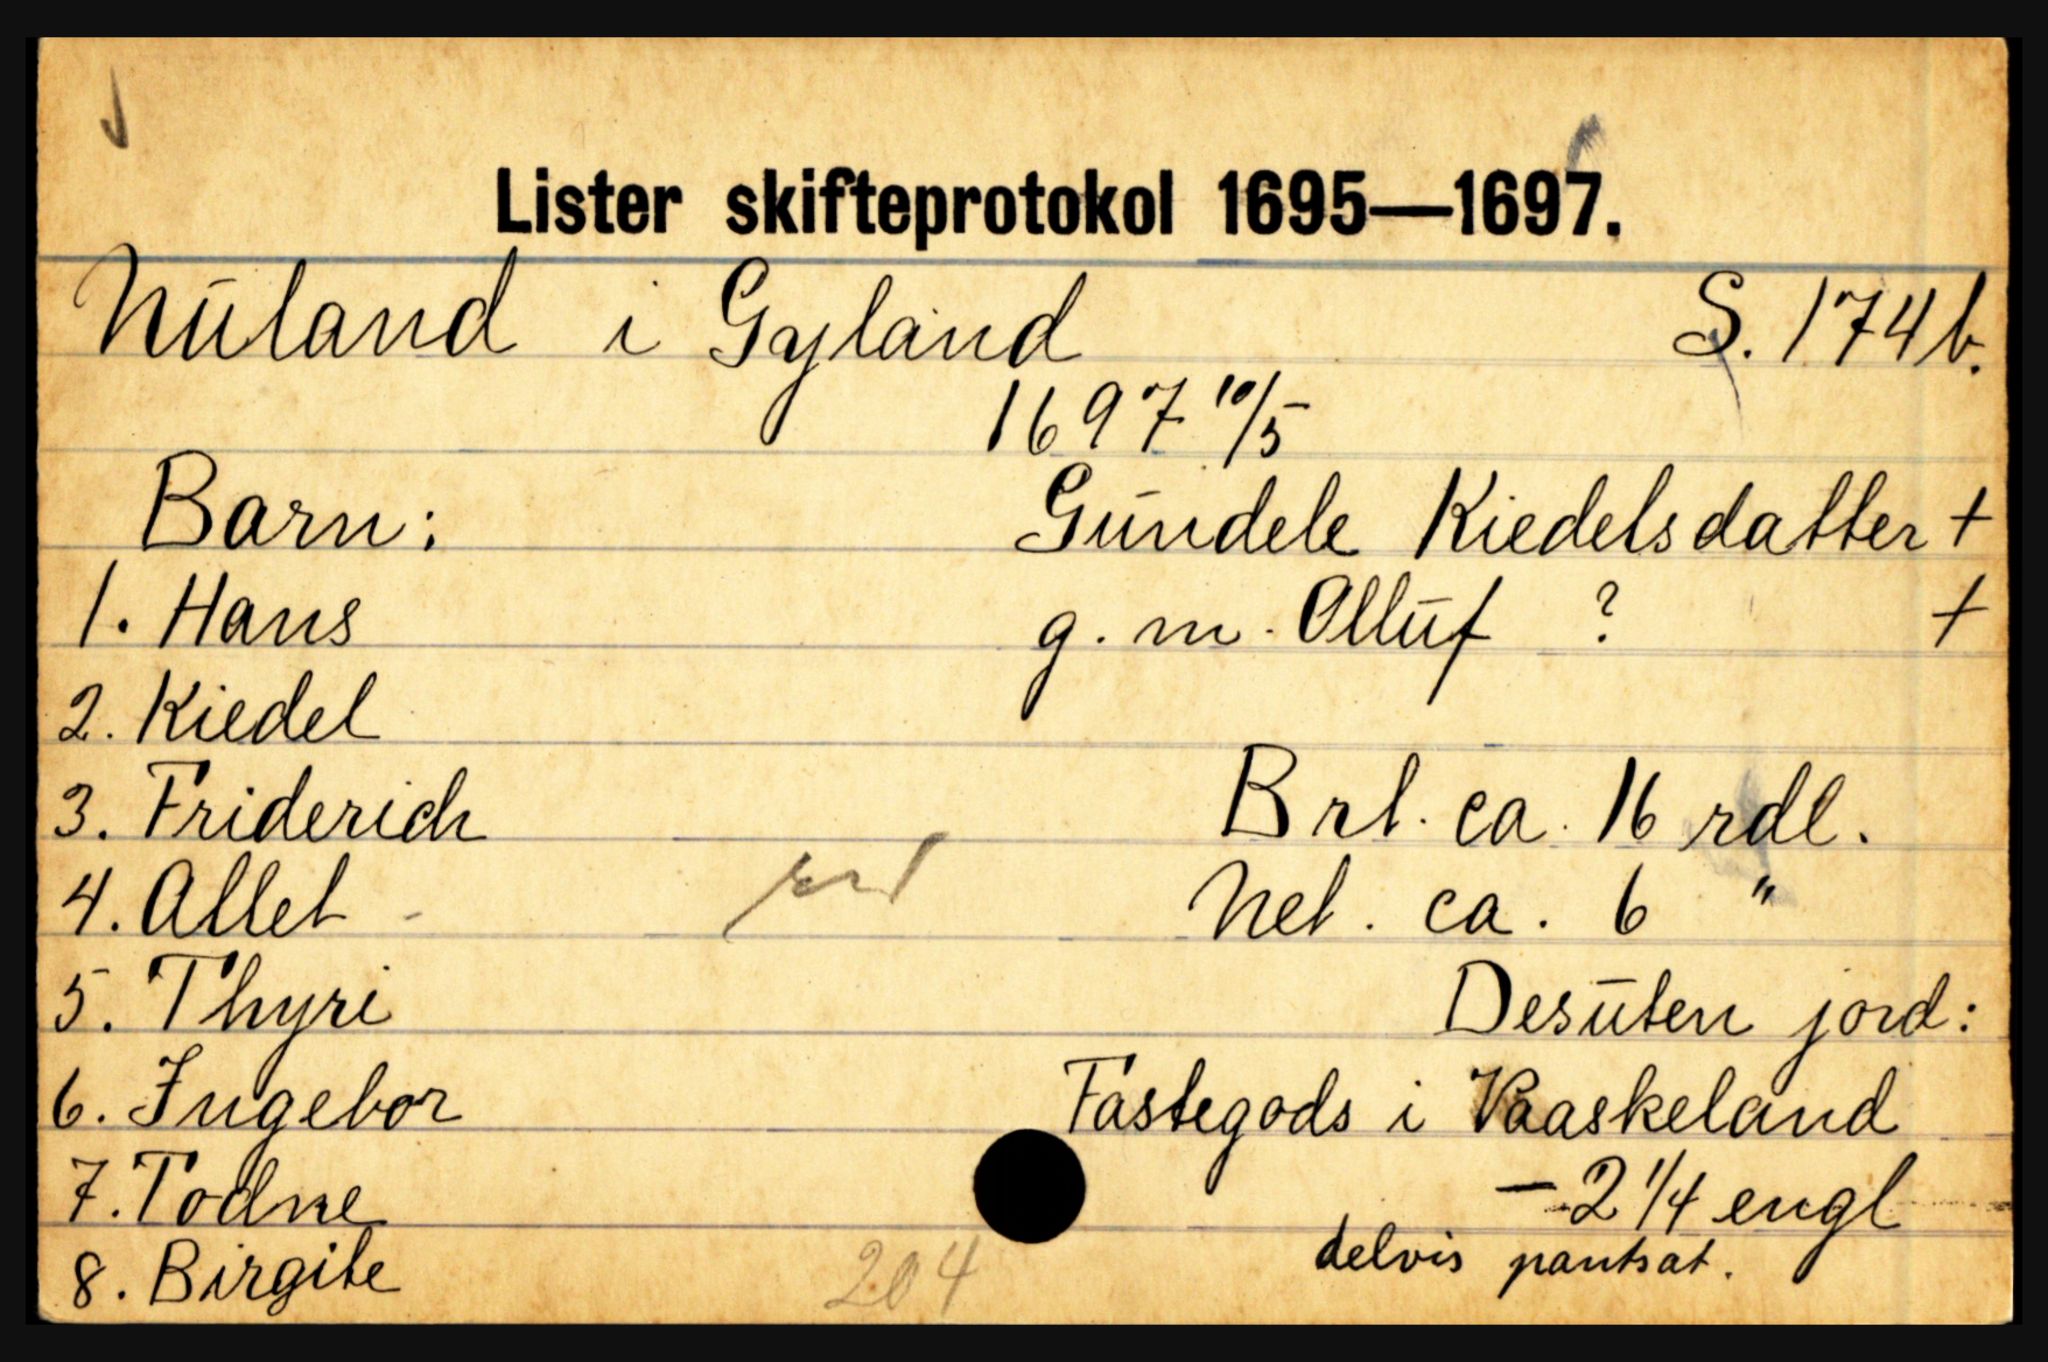 Lister skifteprotokol 1695—1697.
Nūland i Gyland S. 174 b.
1697 10/5
Barn: Gūndele Kiedelsdatter +
1. Hans g. m. Ollūf ? +
2. Kiedel
3. Friderich Brt. ca. 16 rdl.
4. Allet Net. ca. 6 "
5. Thyri Desūten jord:
6. Ingebor Fastegods i Vaaskeland
7. Todne – 2 1/4 engl
delvis pantsat.
8. Birgite
204